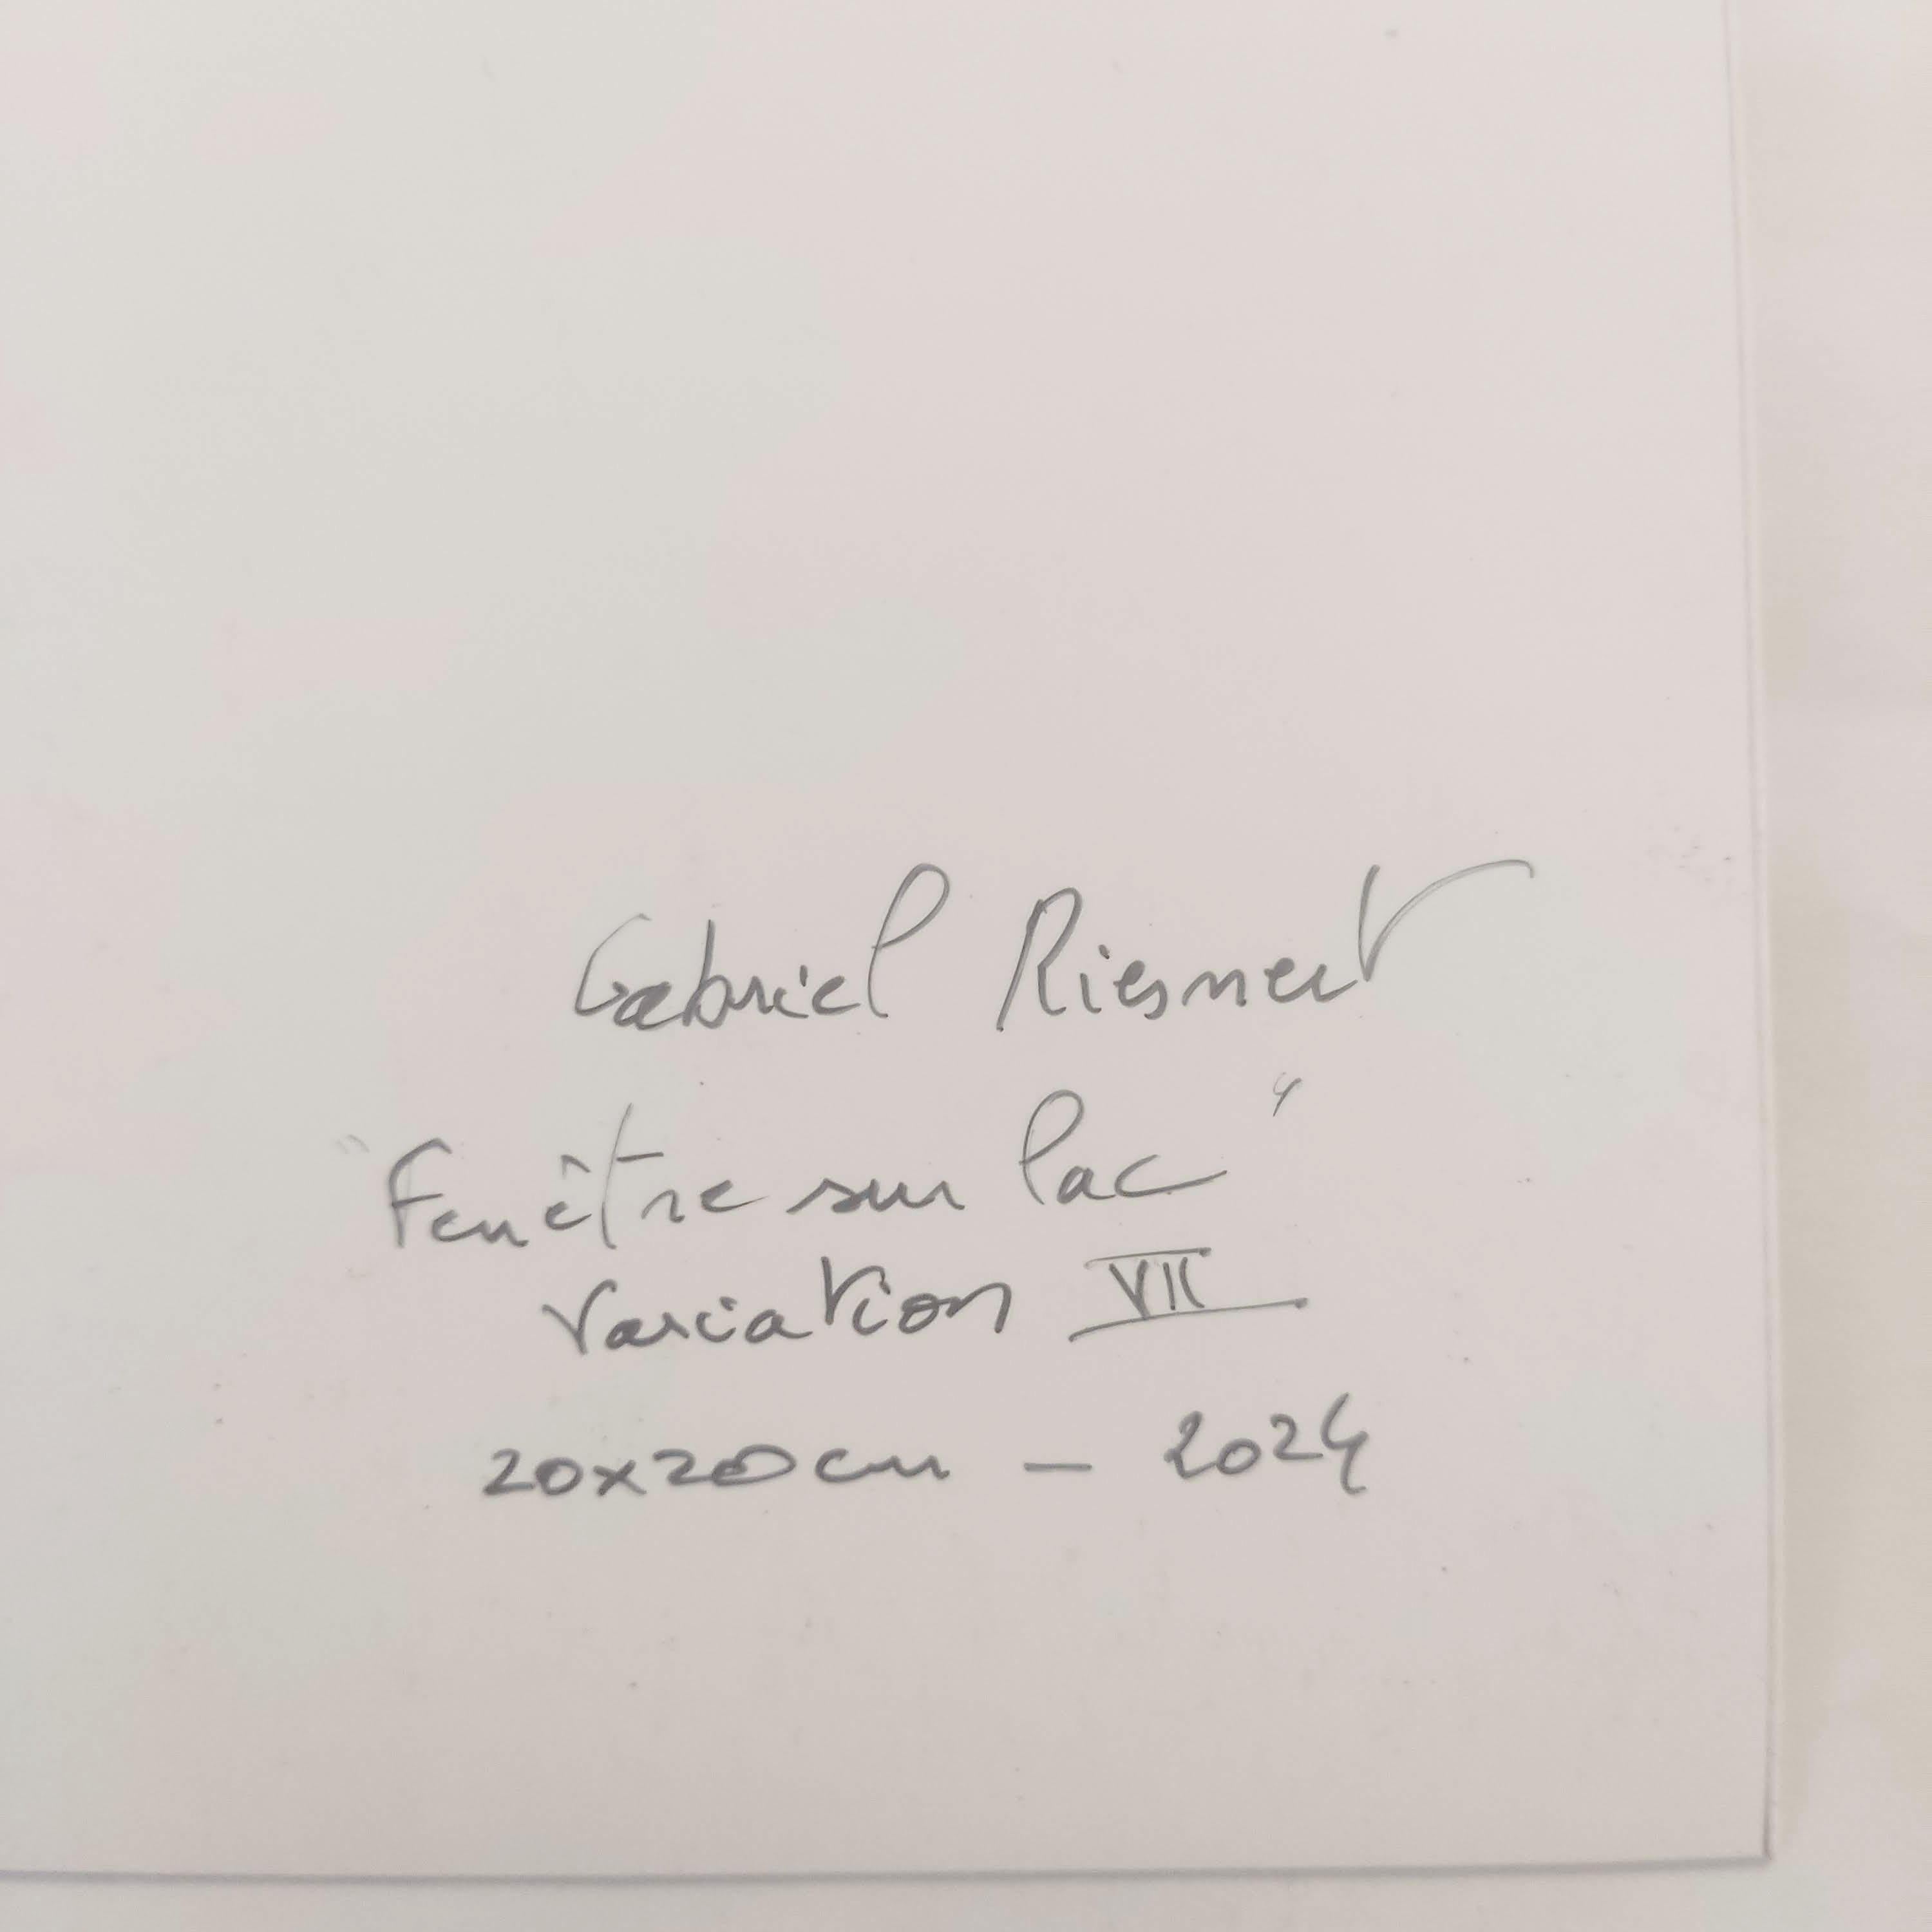 Gabriel Riesnert
"Fenêtre sur lac"
Variation VII
20x20cm - 2024